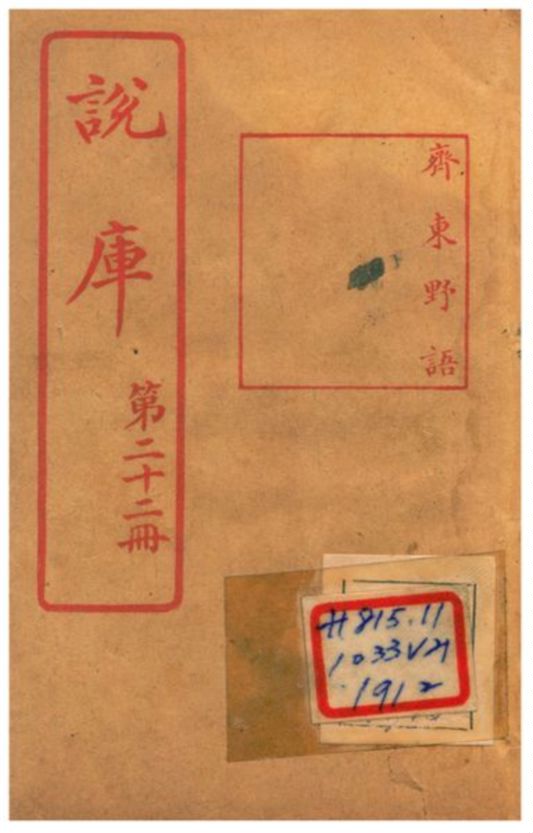 齊東野語
說庫
第二十二冊
H815.11
1033V21
1912